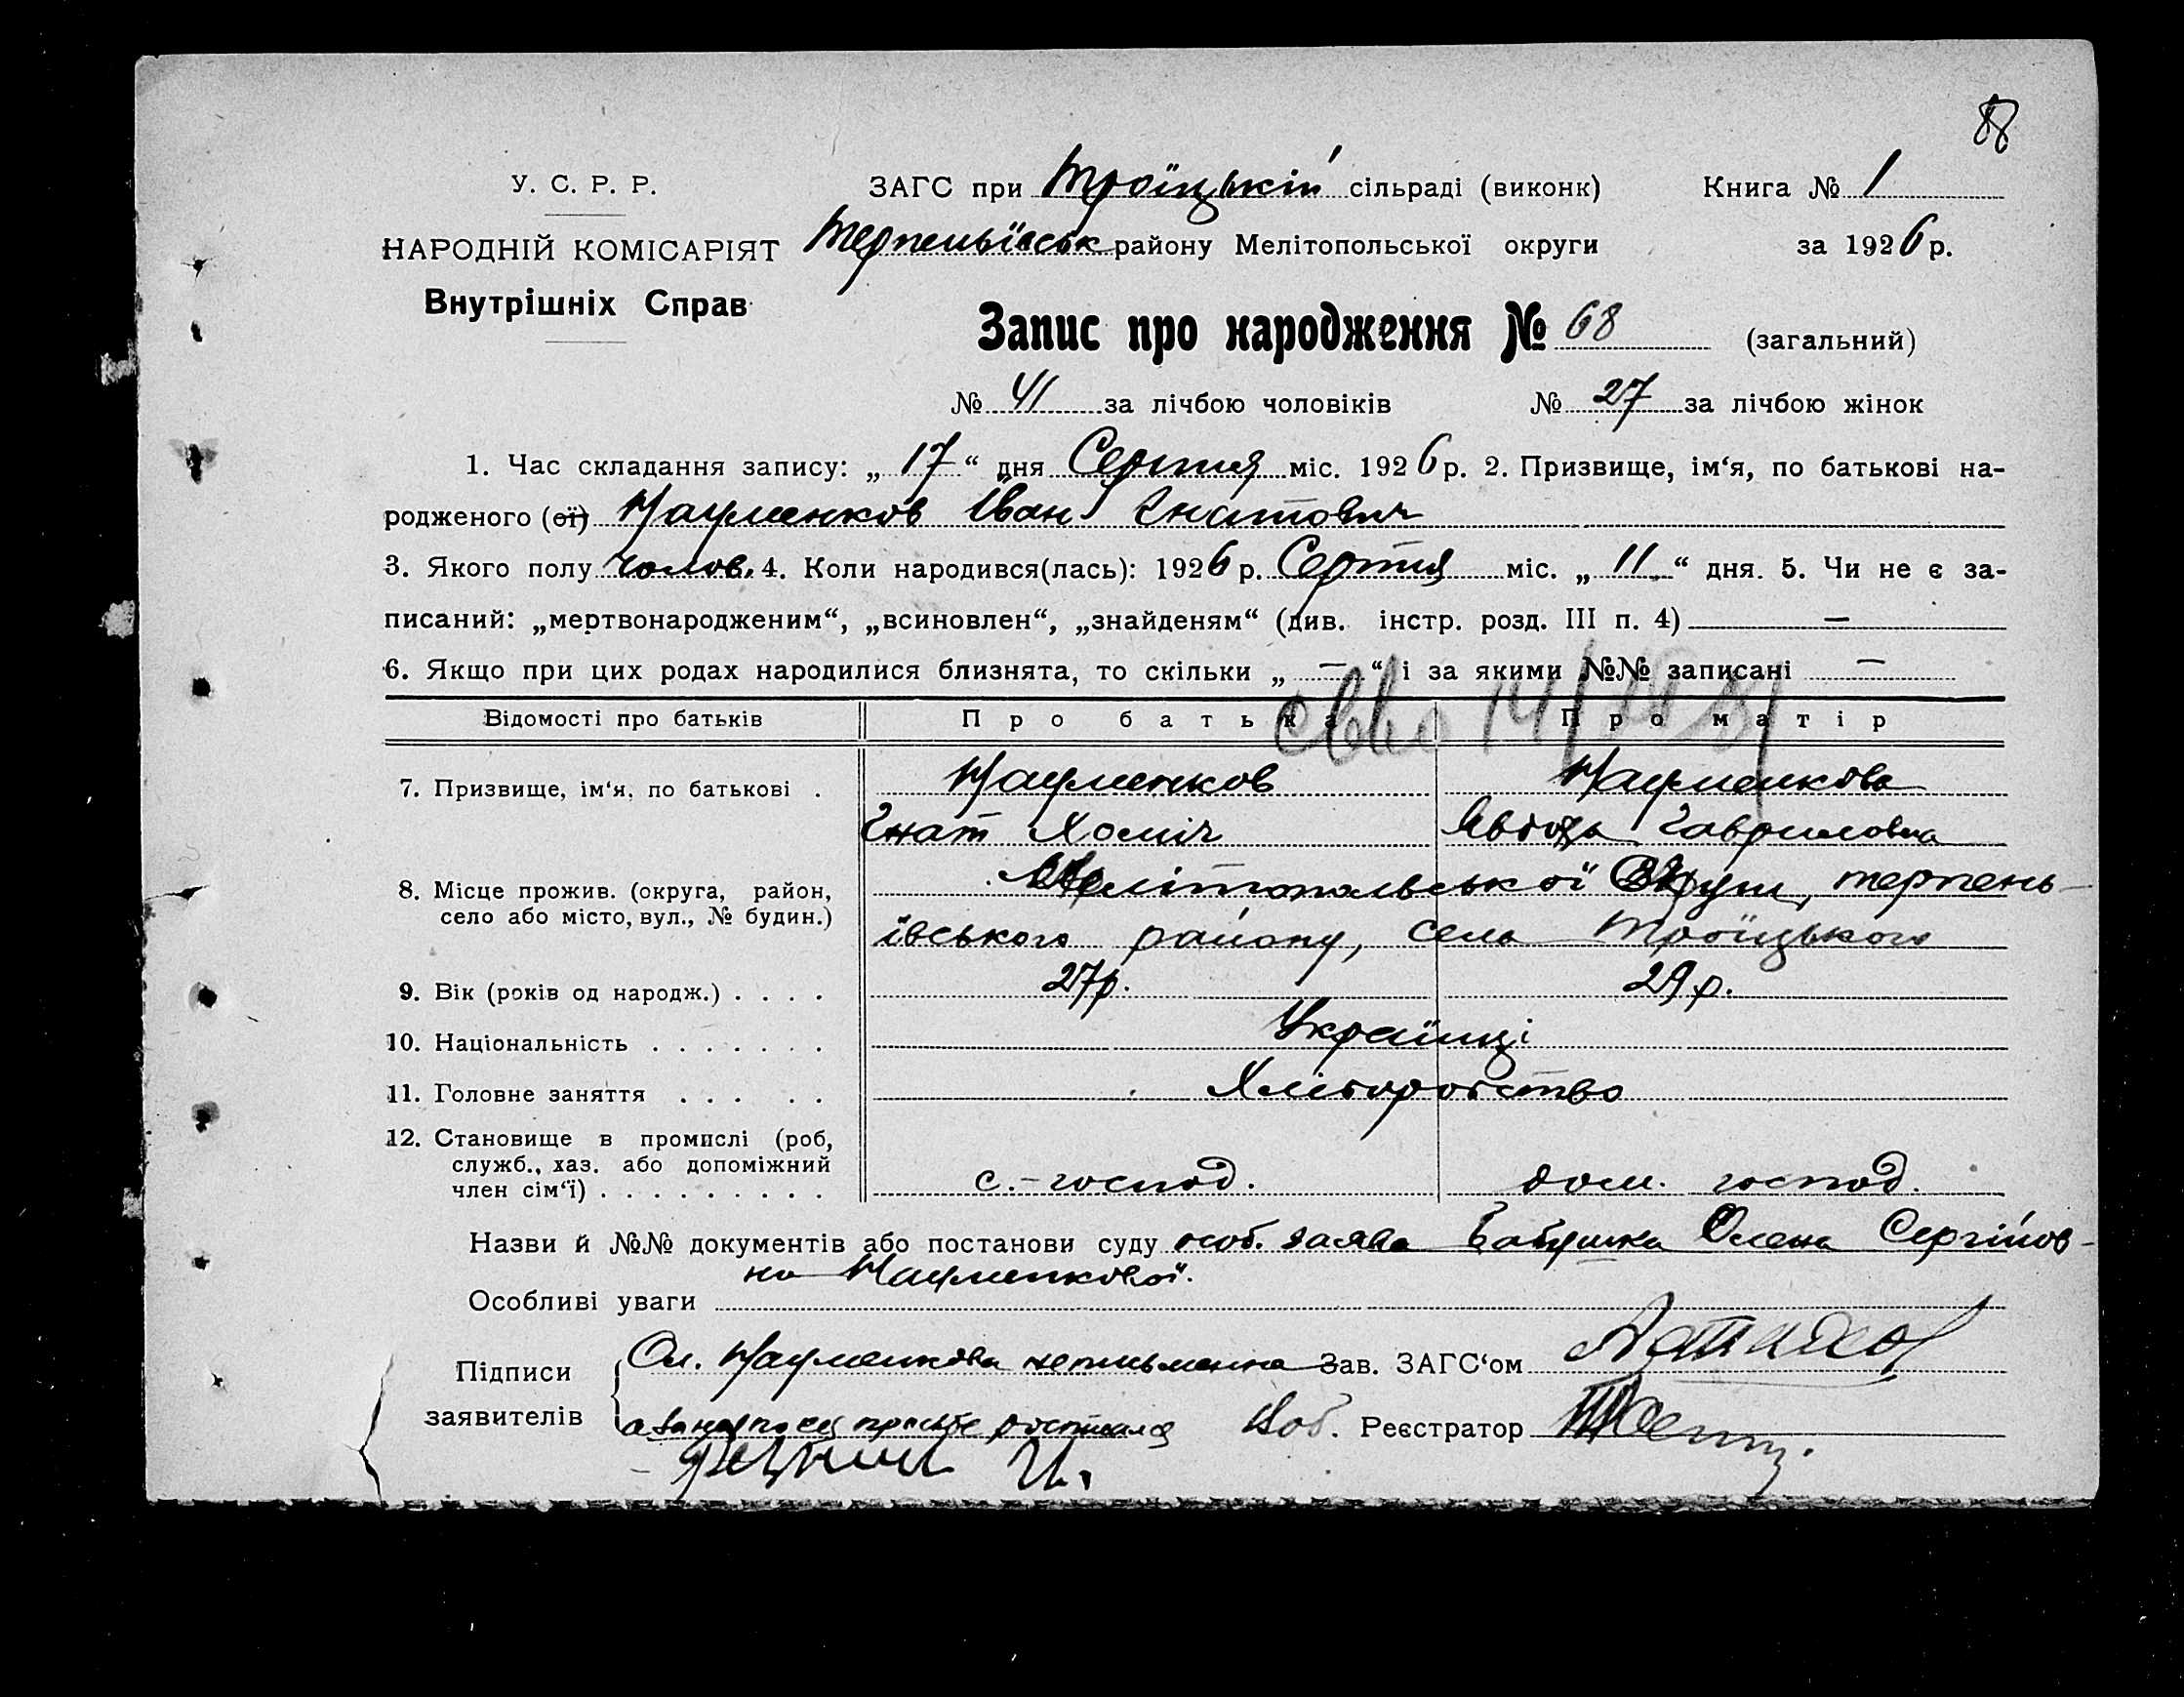 88
У. С. Р. Р.
ЗАГС при Троїцькій сільраді (виконк)
Книга № 1
НАРОДНІЙ КОМІСАРІЯТ
Терпеньївськ району Мелітопольської округи
за 1926 р.
Внутрішніх Справ
Запис про народження № 68 (загальний)
№ 41 за лічбою чоловіків № 27 за лічбою жінок
1. Час складання запису: „ 17 “ дня Серпня міс. 1926 р. 2. Призвище, ім‘я, по батькові на-
родженого (ої) Науменков Іван Гнатович
3. Якого полу чолов. 4. Коли народився(лась): 1926 р. Серпня міс. „ 11 “ дня. 5. Чи не є за-
писаний: „мертвонародженим“, „всиновлен“, „знайденям“ (див. інстр. розд. III п. 4) —
6. Якщо при цих родах народилися близнята, то скільки „ — “ і за якими №№ записані —
Відомості про батьків Про батька Про матір
7. Призвище, ім‘я, по батькові . Науменков Науменкова
Гнат Хоміч Гавриловна
8. Місце прожив. (округа, район, Мелітопольської Округи, терпень-
село або місто, вул., № будин.)
ївського району, села Троїцького
9. Вік (років од народж.) . . . . 27 р. 29 р.
10. Національність . . . . . . . Українці
11. Головне заняття . . . . . Хліборобство
12. Становище в промислі (роб,
служб., хаз. або допоміжний
член сім‘ї) . . . . . . . . . с.-господ. дом. господ.
Назви й №№ документів або постанови суду особ. заява Бабушка Олена Сергійов-
на Науменкової.
Особливі уваги
Підписи Ол. Науменкова неписьменна Зав. ЗАГС‘ом
заявителів Реєстратор